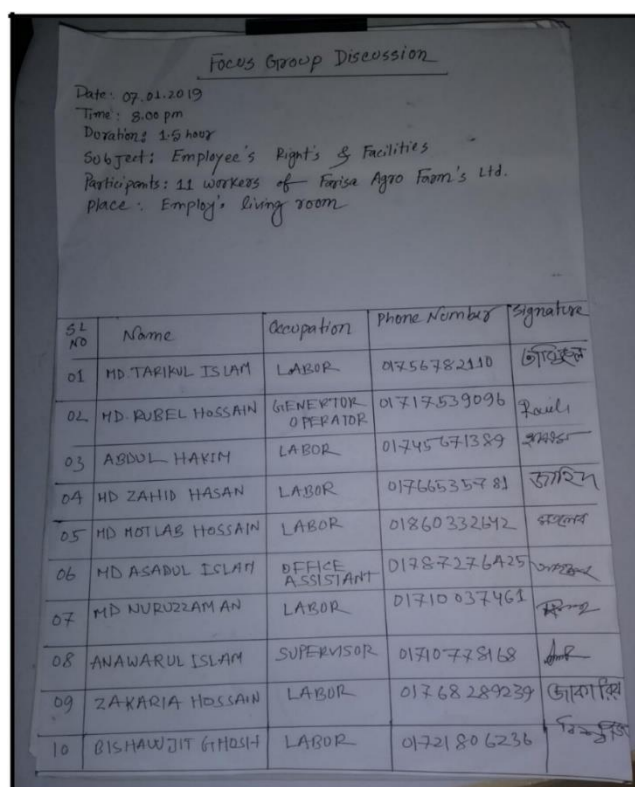 Focus Group Discussion
Date: 07.01.2019
Time: 8.00 pm
Duration: 1.5 hour
Subject: Employee's Right's & Facilities
Participants: 11 workers of Farisa Agro Farm's Ltd.
place: Employ's living room
SL NO Name Occupation Phone Number Signature
01 MD. TARIKUL ISLAM LABOR 01756782110
02 MD. RUBEL HOSSAIN GENERTOR OPERATOR 01717539096
03 ABDUL HAKIM LABOR 01745671389
04 MD ZAHID HASAN LABOR 01766535781 জাহিদ
05 MD MOTLAB HOSSAIN LABOR 01860332642 মতলেব
06 MD ASADUL ISLAM OFFICE ASSISTANT 01787276425
07 MD NURUZZAMAN LABOR 01710037461
08 ANAWARUL ISLAM SUPERVISOR 01710778168
09 ZAKARIA HOSSAIN LABOR 01768289239 জাকারিয়া
10 BISHAWJIT GHOSH LABOR 01721806236